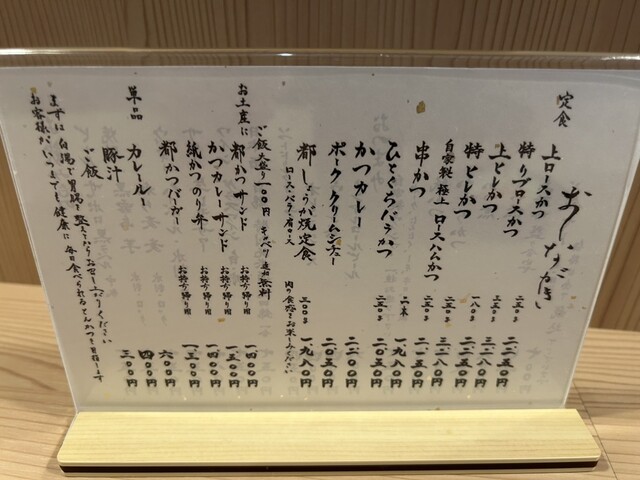 おしながき
定食
上ロースかつ 二五〇g 二二五〇円
特リブロースかつ 二五〇g
上ヒレかつ 三二八〇円
特ヒレかつ 一八〇g 二二八〇円
自家製 極上 ロースハムかつ 二五〇g 三二八〇円
串かつ 二本 二一五〇円
ひとくちバラかつ 二五〇g 一九八〇円
かつカレー 二〇五〇円
ポーククリームシチュー 二二〇〇円
都 しょうが焼定食 三〇〇g 二〇五〇円
ロース・バラ・肩ロース 肉の食感をお楽しみください 一、九八〇円
ご飯大盛り一〇〇円 キャベツ 追加無料
お土産に
都かつサンド お持ち帰り用 一四〇〇円
かつカレーサンド お持ち帰り用 一五〇〇円
紙かつのり弁 お持ち帰り用 一四〇〇円
都かつバーガー お持ち帰り用 一三〇〇円
単品
カレールー 六〇〇円
豚汁 四〇〇円
ご飯 三〇〇円
まずは白湯で胃腸を整えてからお召し上がりください
お客様がいつまでも健康に 毎日食べられるとんかつを目指します